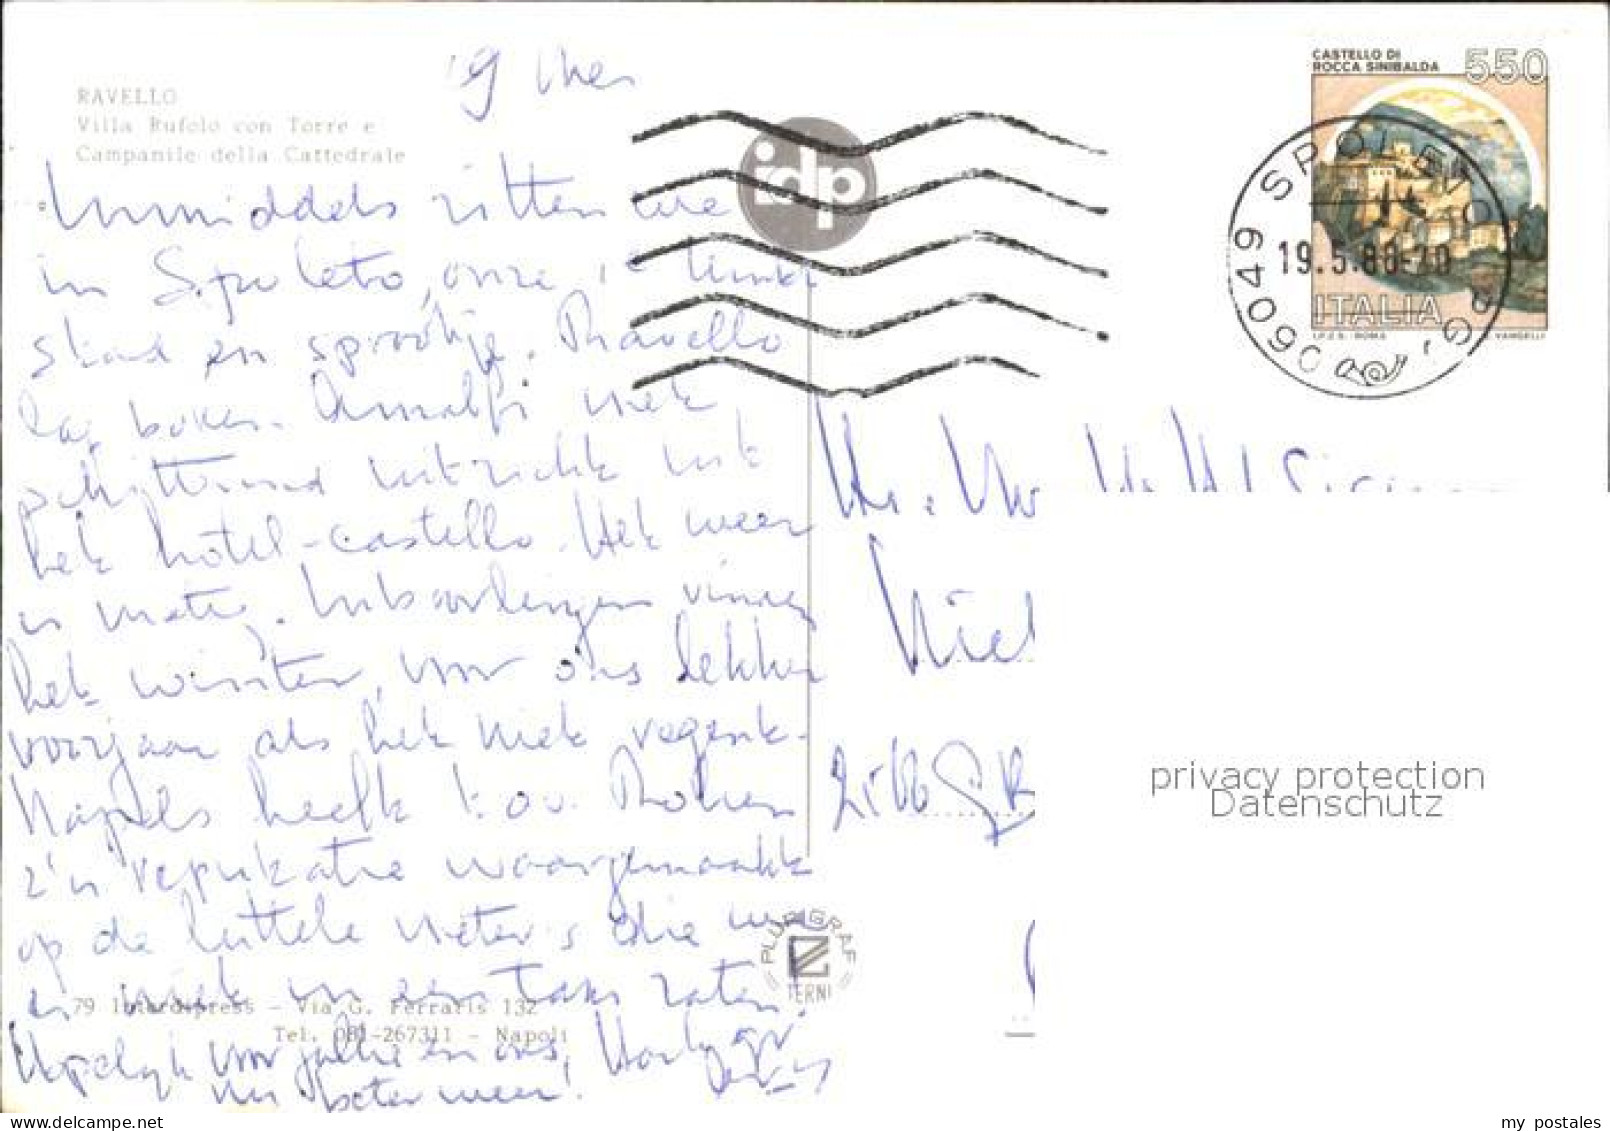 RAVELLO
Villa Rufolo con Torre e
Campanile della Cattedrale
19 mei
idp
CASTELLO DI
ROCCA SINIBALDA
550
ITALIA
I.P.Z.S. - ROMA
E. VANGELLI
06049 SPOLETO
19.5.88-10
PG
Inmiddels zitten we
in Spoleto, onze
stad en sprookje. Ravello
lag boven Amalfi met
schitterend uitzicht uit
het hotel-castello. Het weer
is matig. Inboorlingen vinden
het winter, voor ons lekker
voorjaar als het niet regent.
Napels heeft t.o.v. Roken
z'n reputatie waargemaakt
op de luttele meters die we
er niet in een taxi zaten.
Hopelijk voor jullie en ons,
nu beter weer!
Hartel. gr.
79 Interdipress - Via G. Ferraris 132
Tel. 081-267311 - Napoli
PLURIGRAF
TERNI
privacy protection
Datenschutz
my postales
www.delcampe.net